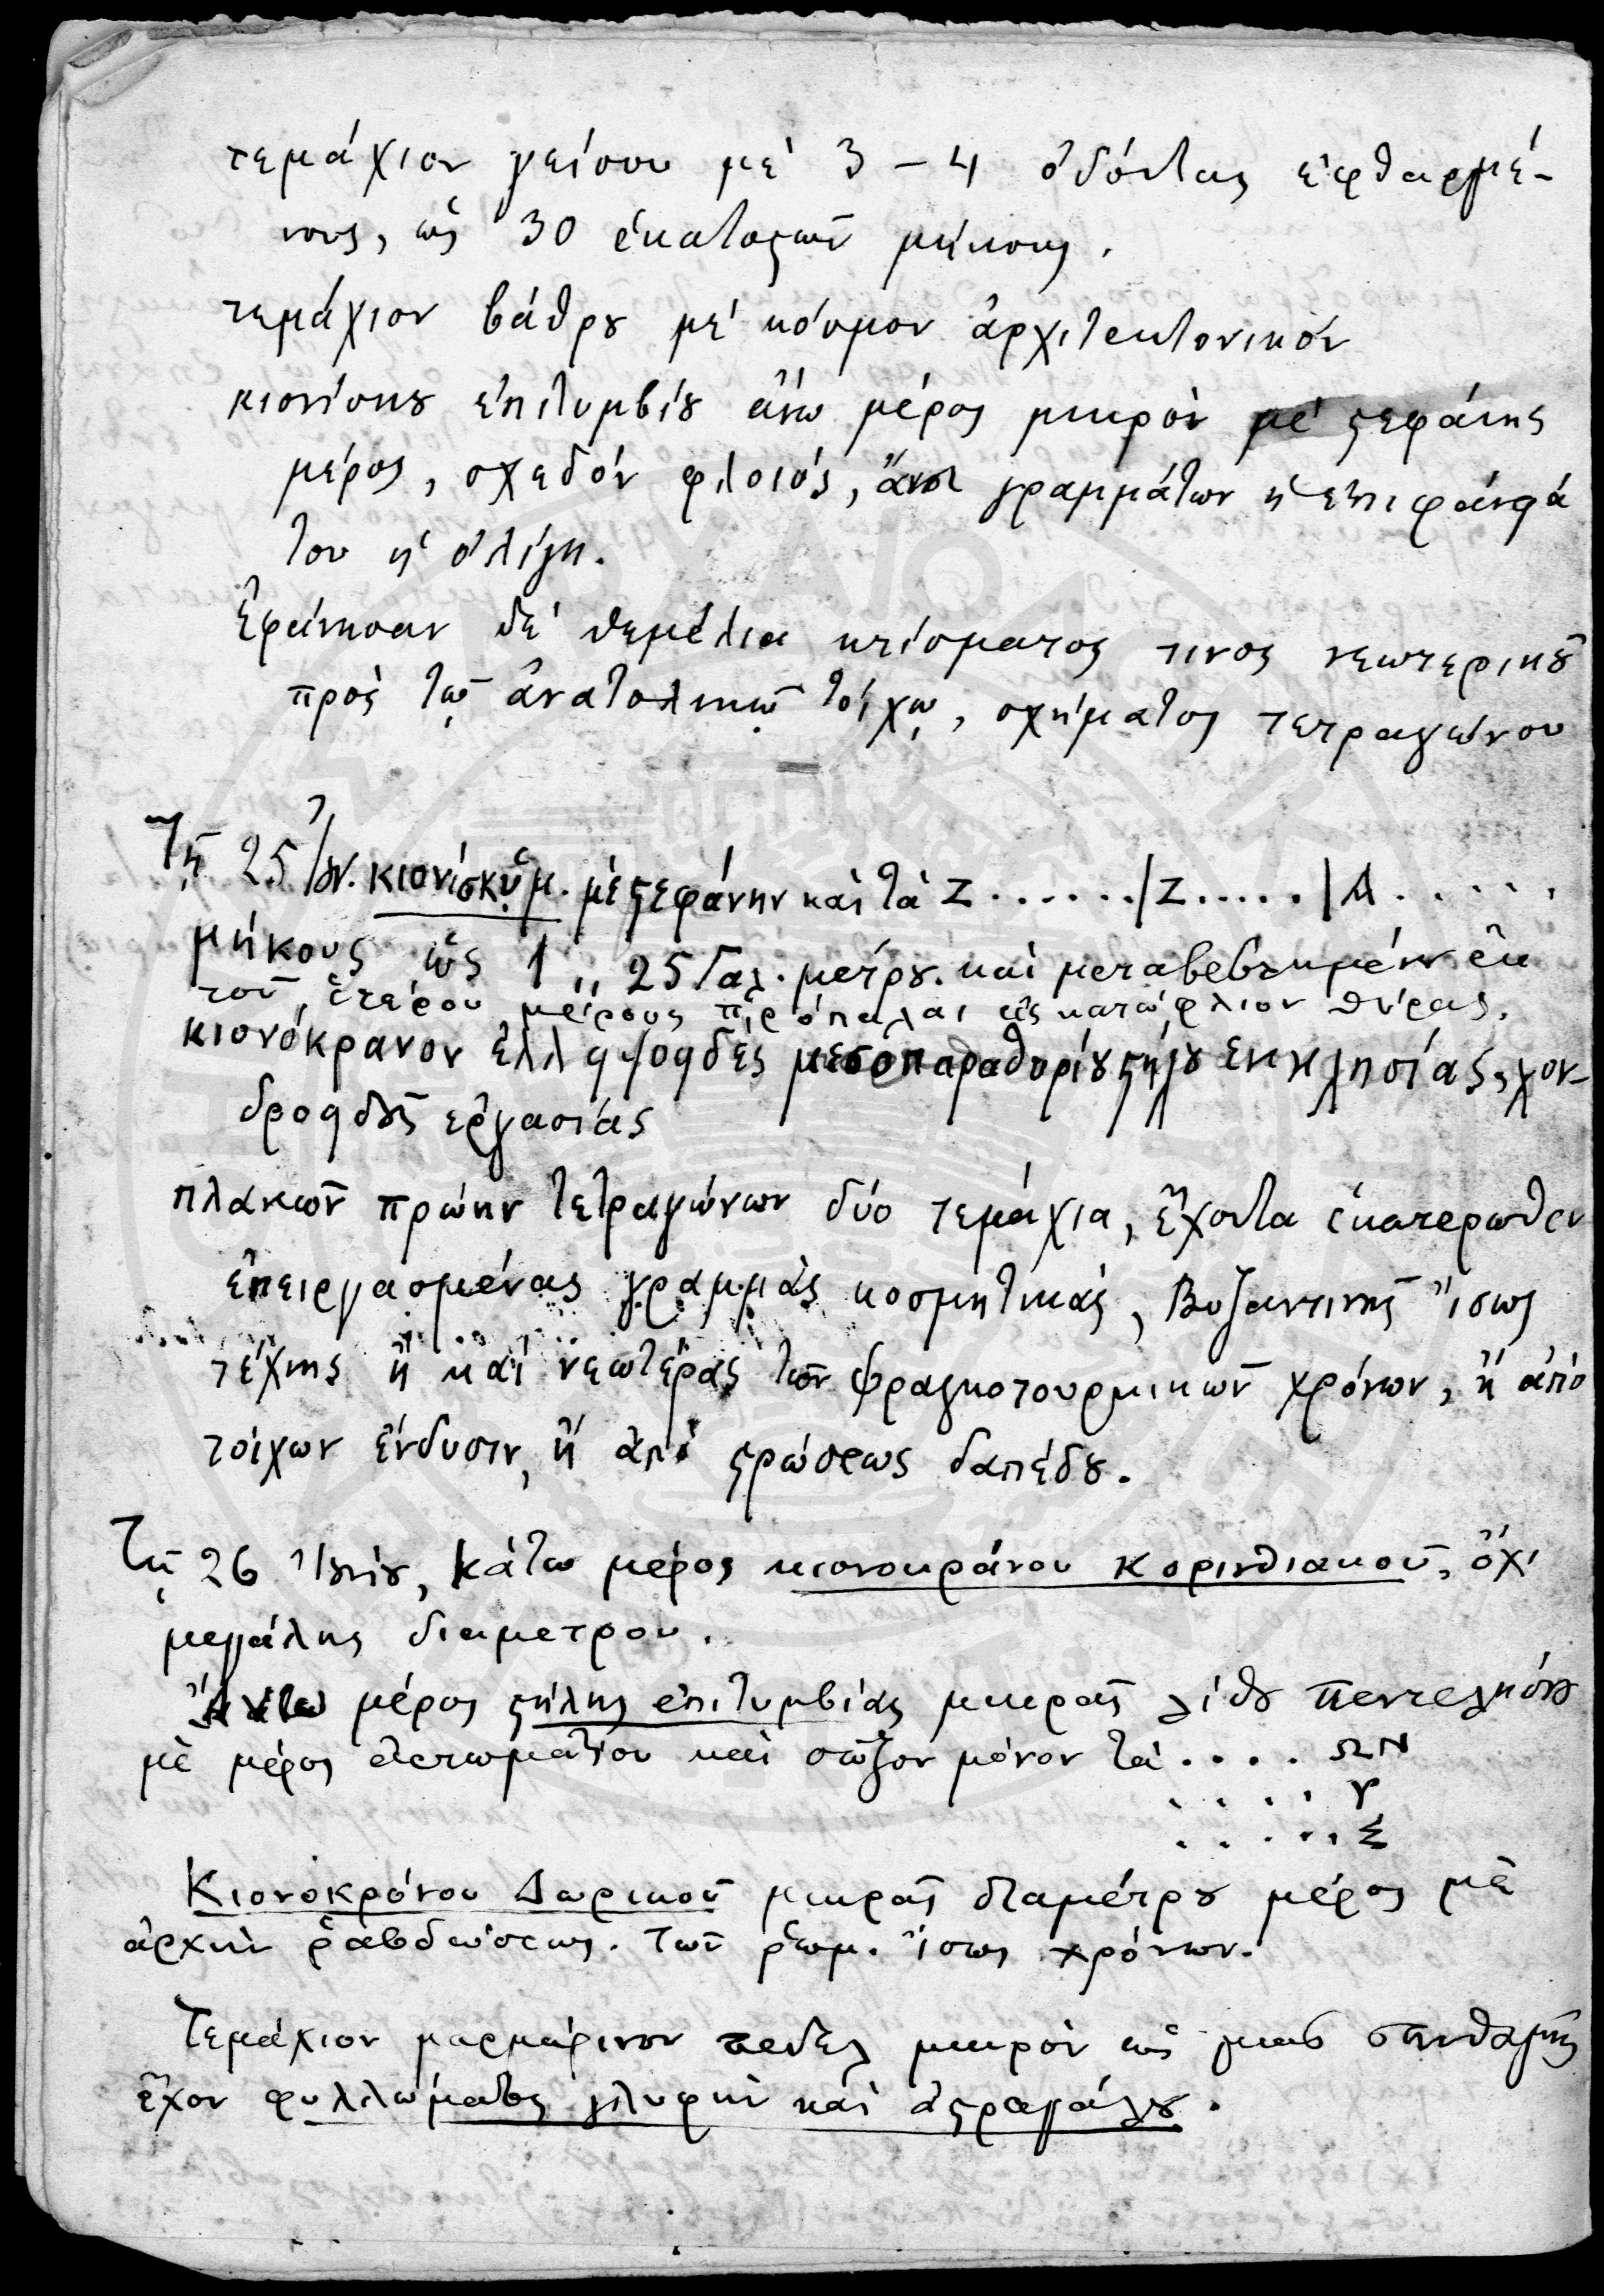 τεμάχιον γείσου μὲ 3 – 4 ὀδόντας ἐφθαρμέ-
νους, ὡς 30 ἑκατοςῶν μήκους.
τεμάχιον βάθρȣ μὲ κόσμον ἀρχιτεκτονικόν
κιονίσκȣ ἐπιτυμβίȣ ἄνω μέρος μικρὸν μὲ ςεφάνης
μέρος, σχεδὸν φλοιός, ἄνευ γραμμάτων ἡ ἐπιφάνειά
του ἡ ὀλίγη.
Ἐφάνησαν δὲ θεμέλια κτίσματος τινος νεωτερικȣ͂
πρὸς τῷ ἀνατολικῷ τοίχῳ, σχήματος τετραγώνου
Τῇ 25 Ἰȣν. κιονίσκȣ μ. μὲ ςεφάνην καὶ τὰ Ζ....../Ζ...../Δ.....
μήκους ὡς 1,,25 Γαλ. μέτρȣ. καὶ μεταβεβλημένον ἐκ
τοῦ ἑτέρου μέρους πρόπαλαι εἰς κατώφλιον θύρας.
κιονόκρανον ἐλλειψοειδὲς μεσοπαραθυρίȣ ςύλȣ ἐκκλησίας, χον-
δροειδȣ͂ς ἐργασίας
πλακῶν πρώην τετραγώνων δύο τεμάχια, ἔχοντα ἑκατέρωθεν
ἐπειργασμένας γραμμὰς κοσμητικάς, Βυζαντινῆς ἴσως
τέχνης ἢ καὶ νεωτέρας τῶν φραγκοτουρκικῶν χρόνων, ἢ ἀπὸ
τοίχων ἔνδυσιν, ἢ ἀπὸ ςρώσεως δαπέδȣ.
Τῇ 26 Ἰȣνίȣ, κάτω μέρος κιονοκράνου κορινθιακοῦ, ὄχι
μεγάλης διαμέτρου.
Ἄνω μέρος ςήλης ἐπιτυμβίας μικρᾶς λίθȣ πεντελησίȣ
μὲ μέρος ἀετωματίου καὶ σῶζον μόνον τὰ .... ΩΝ
.... Υ
..... Σ
Κιονοκράνου Δωρικοῦ μικρᾶς διαμέτρȣ μέρος μὲ
ἀρχὴν ῥαβδώσεως. τῶν ῥωμ. ἴσως χρόνων.
Τεμάχιον μαρμάρινον μικρὸν ὡς μιᾶς σπιθαμῆς
ἔχον φυλλώματος γλυφὴν καὶ ἀςραγάλȣ.